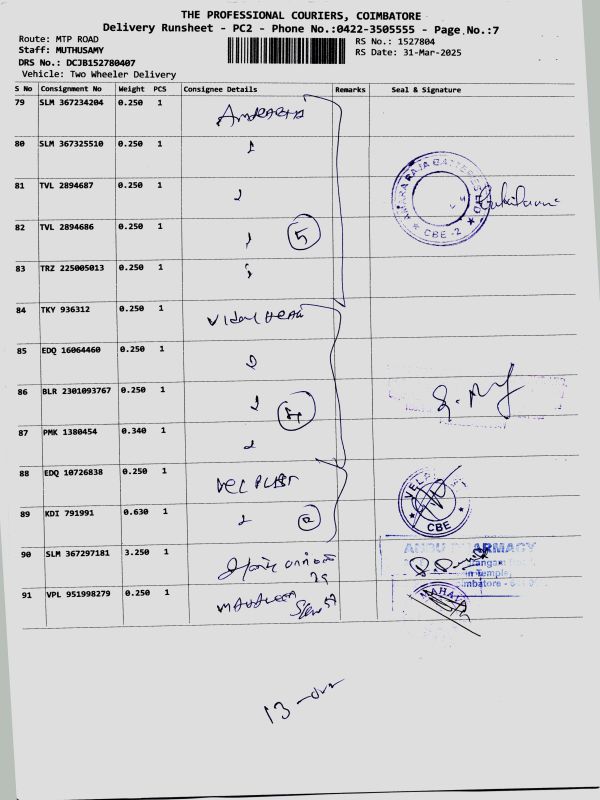 THE PROFESSIONAL COURIERS, COIMBATORE
Delivery Runsheet - PC2 - Phone No.:0422-3505555 - Page No.:7
Route: MTP ROAD
RS No.: 1527804
Staff: MUTHUSAMY
RS Date: 31-Mar-2025
DRS No.: DCJB152780407
Vehicle: Two Wheeler Delivery
S No Consignment No Weight PCS Consignee Details Remarks Seal & Signature
79 SLM 367234204 0.250 1
80 SLM 367325510 0.250 1
81 TVL 2894687 0.250 1
82 TVL 2894686 0.250 1 5
CBE -2
83 TRZ 225005013 0.250 1
84 TKY 936312 0.250 1
85 EDQ 16064460 0.250 1
86 BLR 2301093767 0.250 1
87 PMK 1380454 0.340 1
88 EDQ 10726838 0.250 1
89 KDI 791991 0.630 1
CBE
90 SLM 367297181 3.250 1
PHARMACY
91 VPL 951998279 0.250 1
13